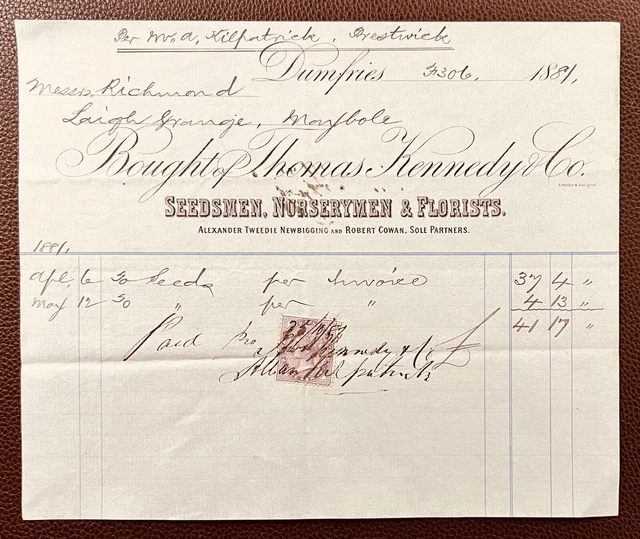 Per Mr. A. Kilpatrick, Prestwick
Dumfries 1881,
Messrs Richmond
Laigh Grange, Maybole
Bought of Thomas Kennedy & Co.
SEEDSMEN, NURSERYMEN & FLORISTS.
ALEXANDER TWEEDIE NEWBIGGING AND ROBERT COWAN, SOLE PARTNERS.
1881,
Apl, 6 To Seeds per Invoice 37 4 "
May 12 To " per " 4 13 "
£ 41 17 "
Paid Pro
25/10/81
Thos Kennedy & Co
Allan Kilpatrick